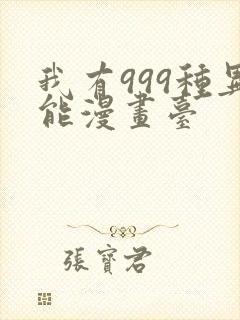 我有999種異
能漫畫臺
張寶君